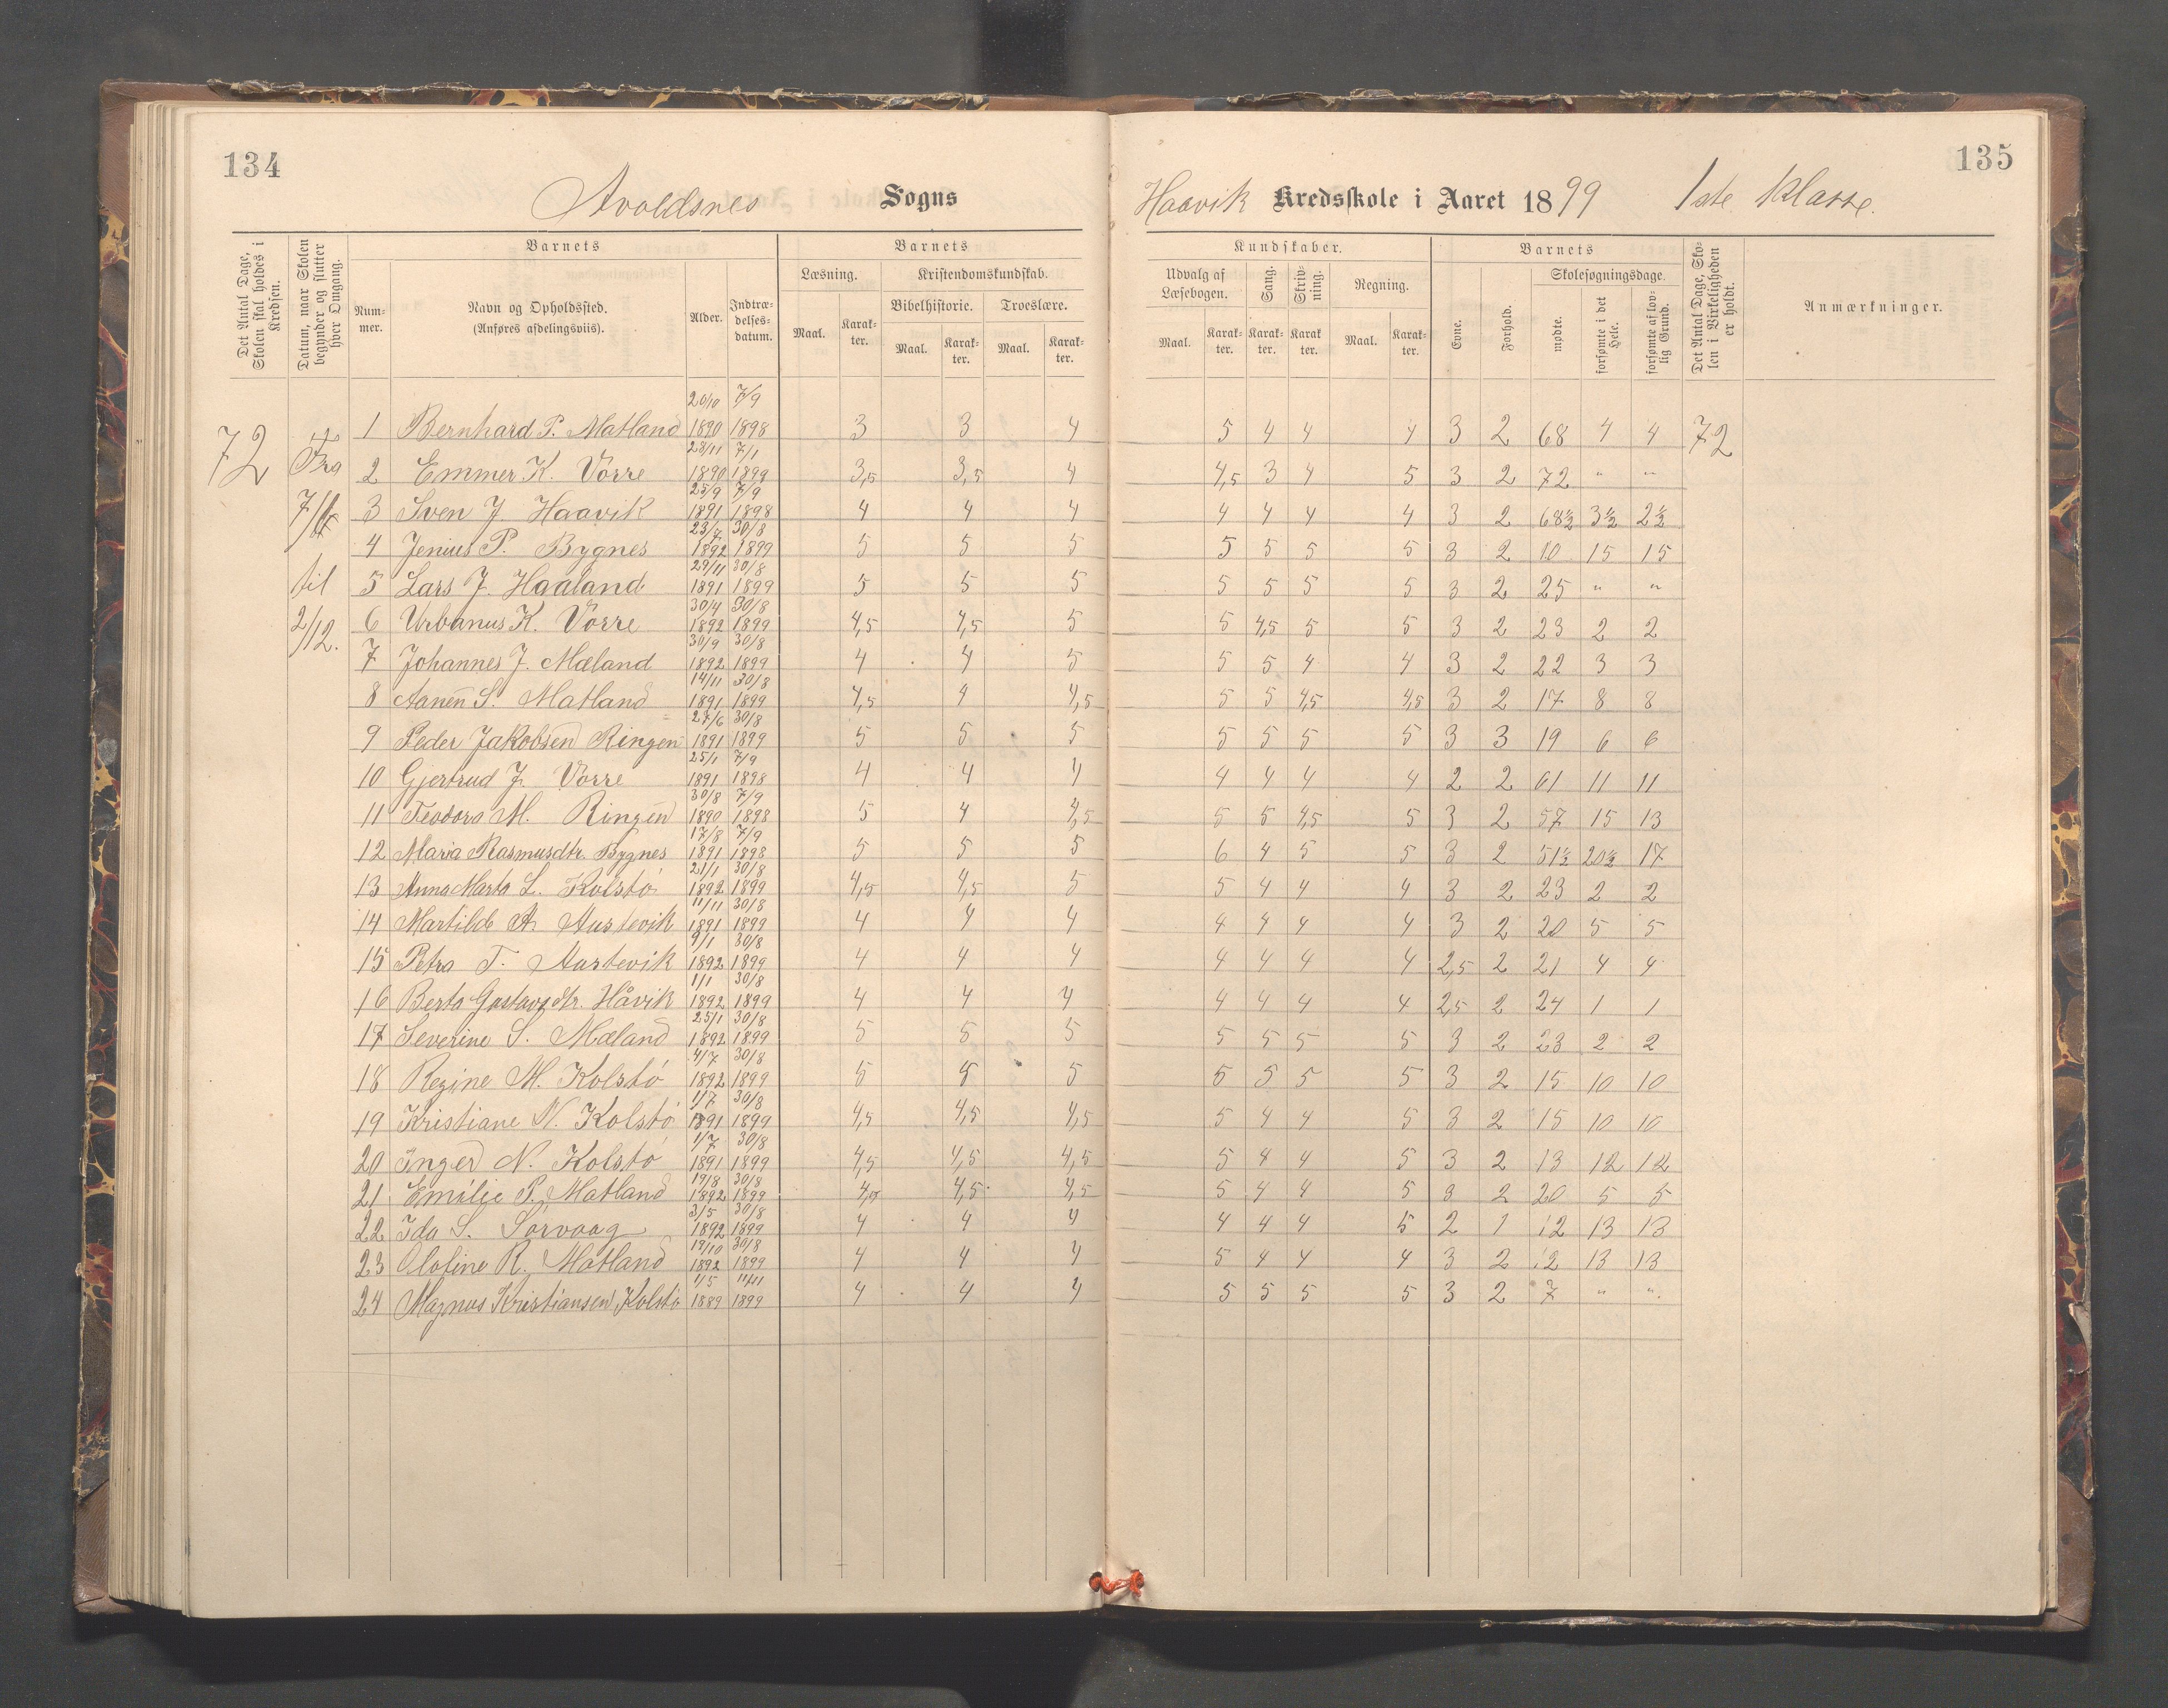 134
135
Avaldsnes Sogns
Haavik Kredsskole i Aaret 1899 1ste Klasse.
Det Antal Dage, Skolen skal holdes i Kredsen.
Datum, naar Skolen begynder og slutter hver Omgang.
Barnets
Num-mer.
Navn og Opholdssted. (Anføres afdelingsviis).
Alder.
Indtræ-delses-datum.
Barnets
Læsning.
Kristendomskundskab.
Bibelhistorie.
Troeslære.
Maal. Karak-ter. Maal. Karak-ter. Maal. Karak-ter.
Kundskaber.
Udvalg af Læsebogen.
Sang.
Skriv-ning.
Regning.
Maal. Karak-ter. Karak-ter. Karak ter. Maal. Karak-ter.
Barnets
Evne.
Forhold.
Skolesøgningsdage.
mødte.
forsømte i det Hele.
forsømte af lov-lig Grund.
Det Antal Dage, Sko-len i Virkeligheden er holdt.
Anmærkninger.
72
Fra
til
2/12.
72
1 Bernhard P. Matland 20/10 1890 7/9 1898 3 3 4 5 4 4 4 3 2 68 4 4
2 Emmer K. Vorre 28/11 1890 7/1 1899 3,5 3,5 4 4,5 3 4 5 3 2 72 " "
3 Sven J Haavik 25/9 1891 7/9 1898 4 4 4 4 4 4 4 3 2 68½ 3½ 2½
4 Jenius P. Bygnes 23/7 1892 30/8 1899 5 5 5 5 5 5 5 3 2 10 15 15
5 Lars J. Haaland 29/11 1891 30/8 1899 5 5 5 5 5 5 5 3 2 25 " "
6 Urbanus K. Vorre 30/4 1892 30/8 1899 4,5 4,5 5 5 4,5 5 5 3 2 23 2 2
7 Johannes J. Mæland 30/9 1892 30/8 1899 4 4 5 5 5 4 4 3 2 22 3 3
8 Aanen S. Matland 14/11 1891 30/8 1899 4,5 4 4,5 5 5 4,5 4,5 3 2 17 8 8
9 Peder Jakobsen Ringen 27/6 1891 30/8 1899 5 5 5 5 5 5 5 3 3 19 6 6
10 Gjertrud J. Vorre 25/1 1891 7/9 1898 4 4 4 4 4 4 4 2 2 61 11 11
11 Teodora M. Ringen 30/8 1890 7/9 1898 5 4 4,5 5 5 4,5 5 3 2 57 15 13
12 Maria Rasmusdtr. Bygnes 17/8 1891 7/9 1898 5 5 5 6 4 5 5 3 2 51½ 20½ 17
13 Anna Marta L. Kolstø 21/1 1892 30/8 1899 4,5 4,5 5 5 4 4 4 3 2 23 2 2
14 Martilde A. Austevik 11/11 1891 30/8 1899 4 4 4 4 4 4 4 3 2 20 5 5
15 Petra T. Austevik 9/1 1892 30/8 1899 4 4 4 4 4 4 4 2,5 2 21 4 4
16 Berta Gustavsdtr. Håvik 1/1 1892 30/8 1899 4 4 4 4 4 4 4 2,5 2 24 1 1
17 Severine S. Mæland 25/1 1892 30/8 1899 5 5 5 5 5 5 5 3 2 23 2 2
18 Regine M. Kolstø 4/7 1892 30/8 1899 5 5 5 5 5 5 5 3 2 15 10 10
19 Kristiane N. Kolstø 1/7 1891 30/8 1899 4,5 4,5 4,5 5 4 4 5 3 2 15 10 10
20 Inger N. Kolstø 1/7 1891 30/8 1899 4,5 4,5 4,5 5 4 4 5 3 2 13 12 12
21 Emilie P. Matland 19/8 1892 30/8 1899 4,5 4,5 4,5 5 4 4 5 3 2 20 5 5
22 Ida S. Sørvaag 3/5 1892 30/8 1899 4 4 4 4 4 4 5 2 1 12 13 13
23 Olufine R. Matland 19/10 1892 30/8 1899 4 4 4 5 4 4 4 3 2 12 13 13
24 Magnus Kristiansen Kolstø 1/5 1889 11/11 1899 4 4 4 5 5 5 5 3 2 7 " "